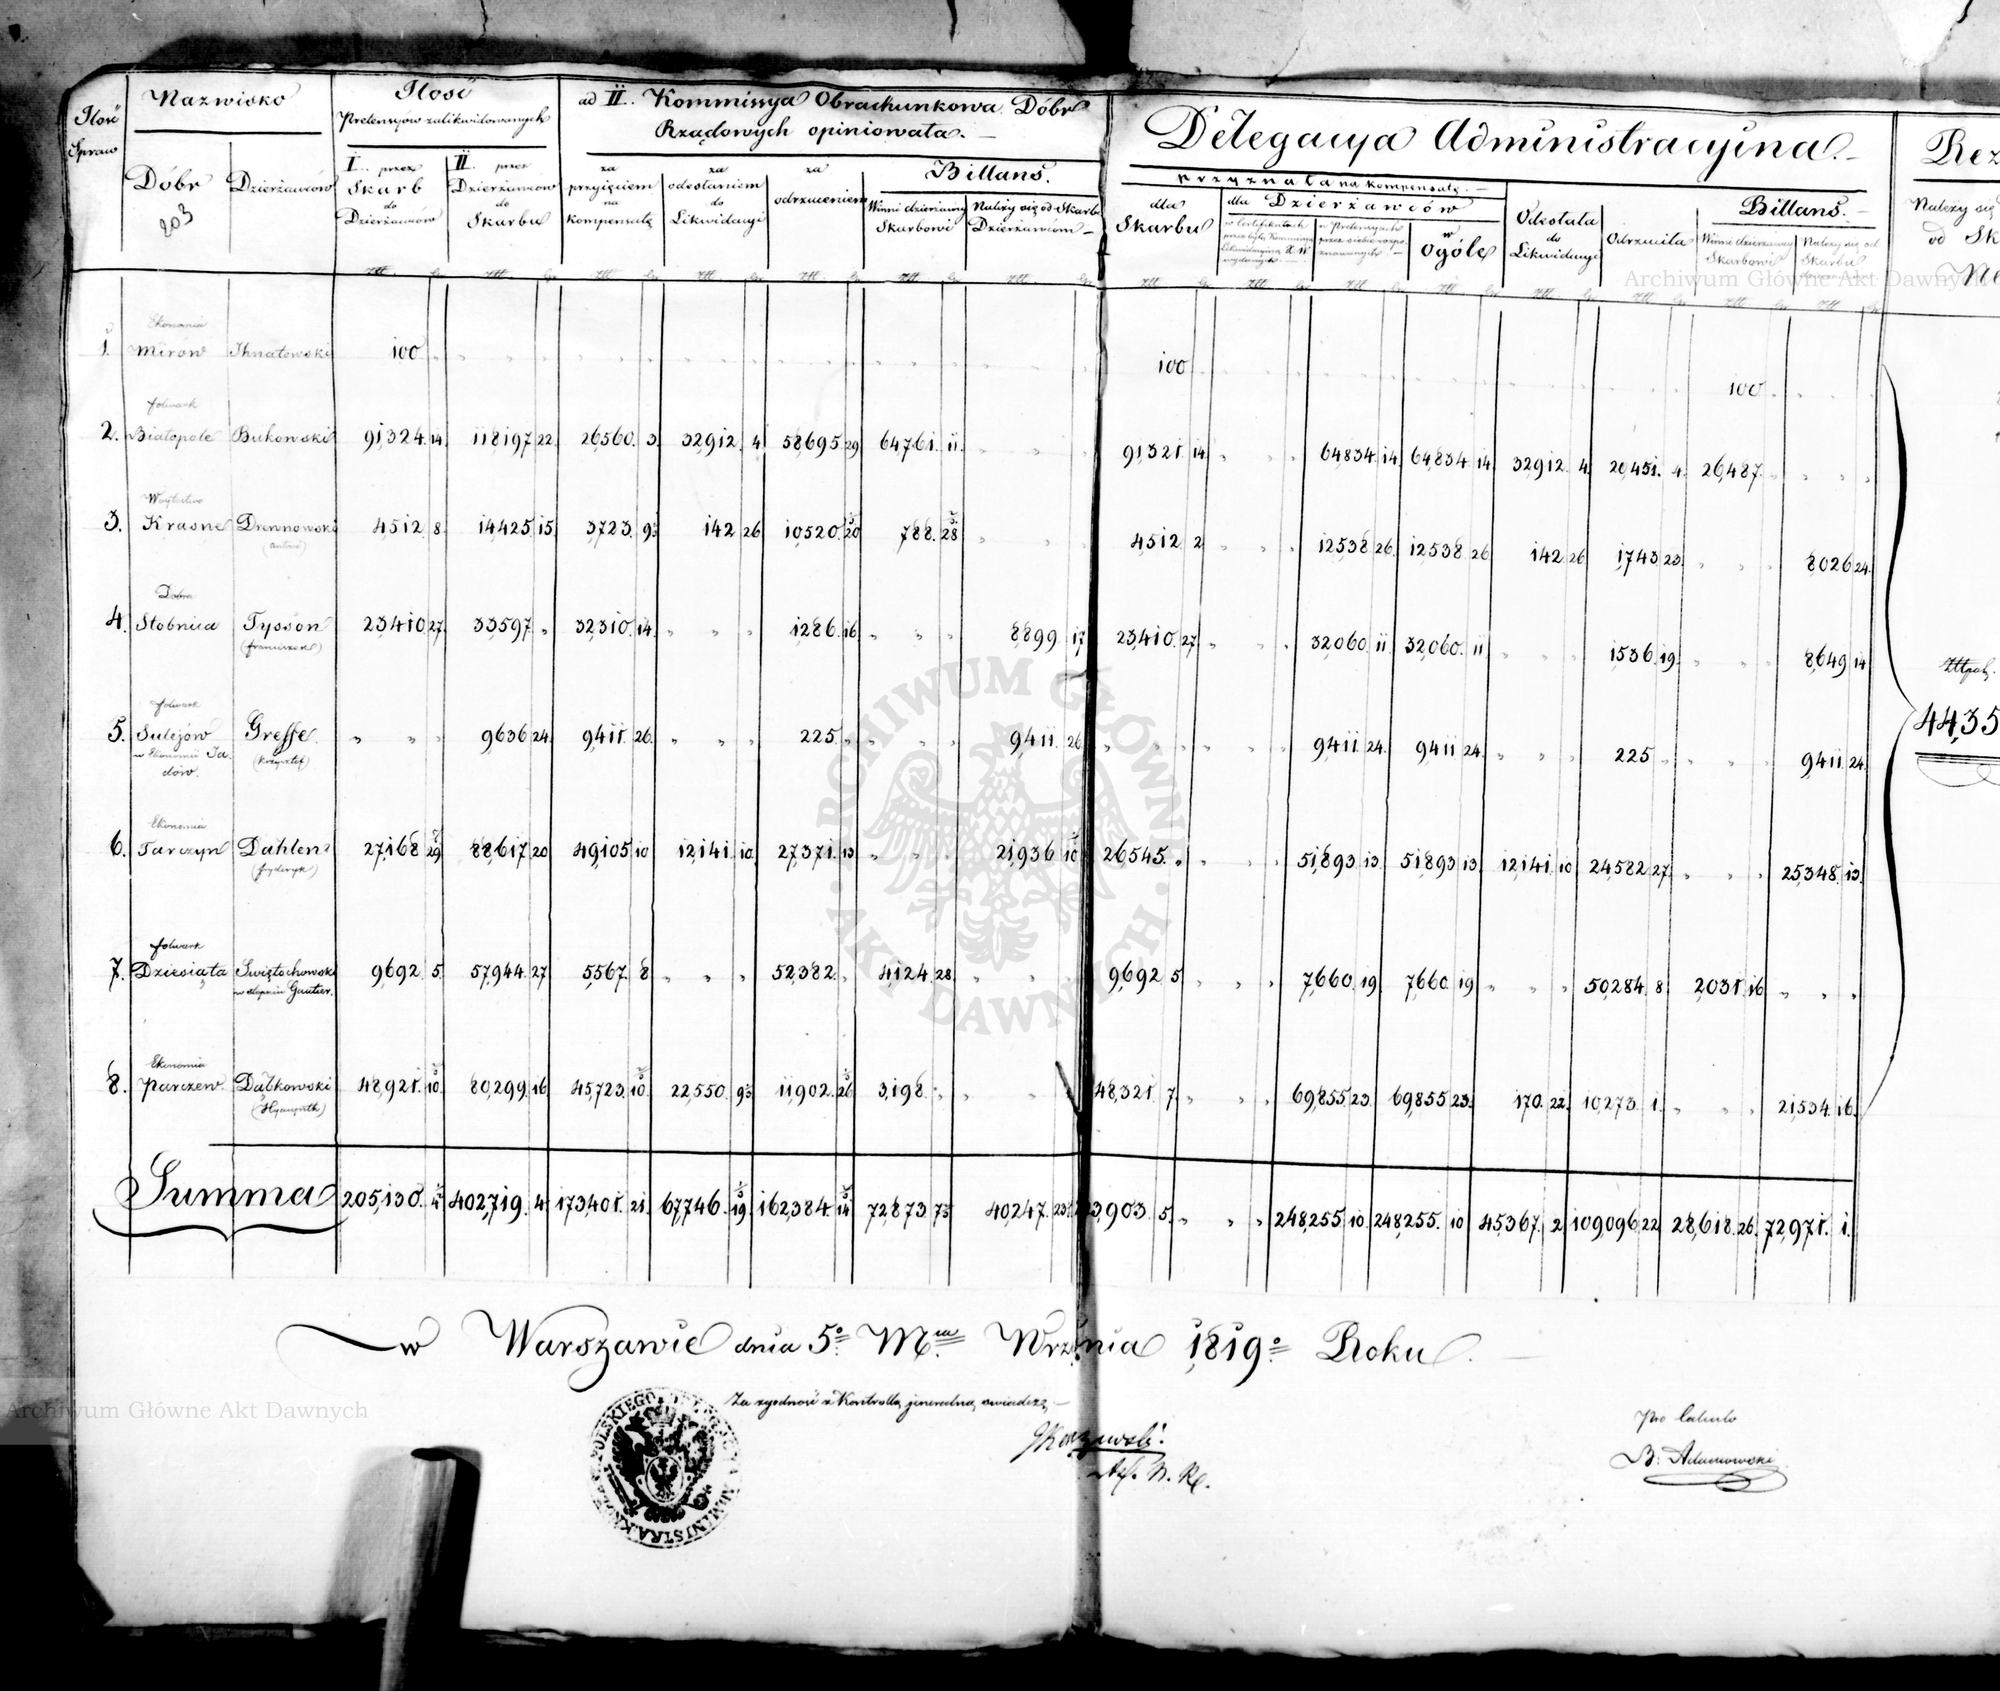 Ilość Spraw
Nazwisko
Dóbr
203
Dzierżawców
Ilość
Pretensyów zalikwidowanych
I. przez Skarb do Dzierżawców
II. przez Dzierżawców do Skarbu
ad II. Kommissya Obrachunkowa Dóbr
Rządowych opiniowała. —
za przyjęciem na kompensatę
za odesłaniem do Likwidacyi
za odrzuceniem
Billans.
Winni dzierżawcy Skarbowi
Należy się od Skarbu Dzierżawcom —
Delegacya Administracyina. —
przyznała na kompensatę. —
dla Skarbu
dla Dzierżawców
w ogóle
Odesłała do Likwidacyi
Odrzuciła
Billans. —
Winni dzierżawcy Skarbowi
Należy się od Skarbu
Należy się
od
1. Ekonomia Mirów Ihnatowski 100 100 100
2. folwark Białopole Bukowski 91,324. 14 118,197 22 26,560. 3 32,912 4 58,695 29 64,761. 11. 91,321 14 64,834 14 64,834 14 32,912 4 20,451. 4 26,487.
3. Woytostwo Krasne Drewnowski (Antoni) 4,512 8 14,425 15 3,723. 9½ 142 26 10,520. 20 788. 28 4,512 2 12,538 26 12,538 26 142 26 1,743 23 8,026 24
4. Dobra Stobnica Tysson (franciszek) 23,410 27 33,597 „ 32,310. 14 1,286. 16 8,899 17 23,410. 27 32,060 11 32,060. 11 1,536. 19 8,649 14
5. folwark Sulejów w Ekonomii Jadów. Greffe. (Krzysztof) 9,636 24 9,411. 26 225 „ 9,411. 26 9,411 24 9,411 24 225 9,411 24
6. Ekonomia Tarczyn Dahlen (fryderyk) 27,168 29 88,617 20 49,105 10 12,141. 10 27,371. 13 21,936 10 26,545. „ 51,893 13 51,893 13 12,141 10 24,582 27 25,348. 13
7. folwark Dziesiąta Swiętochowski w stopniu Gautier. 9,692. 5 57,944 27 5,567. 8 52,382. 4,124. 28 9,692 5 7,660 19 7,660 19 50,284 8 2,031 16
8. Ekonomia Parczew Dąbkowski (Hyacynth) 48,921. 10 80,299 16 45,723. 10 22,550. 9½ 11,902. 26 3,198. 48,321 7 69,855 23 69,855 23 170. 22 10,273 1. 21,534. 16
44,35
Summa 205,130. 4 402,719. 4 173,401. 21 67,746. 19 162,384. 14 72,873 40,247. 23 3,903. 5 248,255 10 248,255. 10 45,367. 2 109,096 22 28,618. 26 72,971. 1.
w Warszawie dnia 5º Mca Września 1819º Roku. —
Za zgodność z Kontrollą jeneralną, swiadczę —
Pro Calculo
B. Adamowski
Archiwum Główne Akt Dawnych
Archiwum Główne Akt Dawnych
ARCHIWUM GŁÓWNE
AKT DAWNYCH